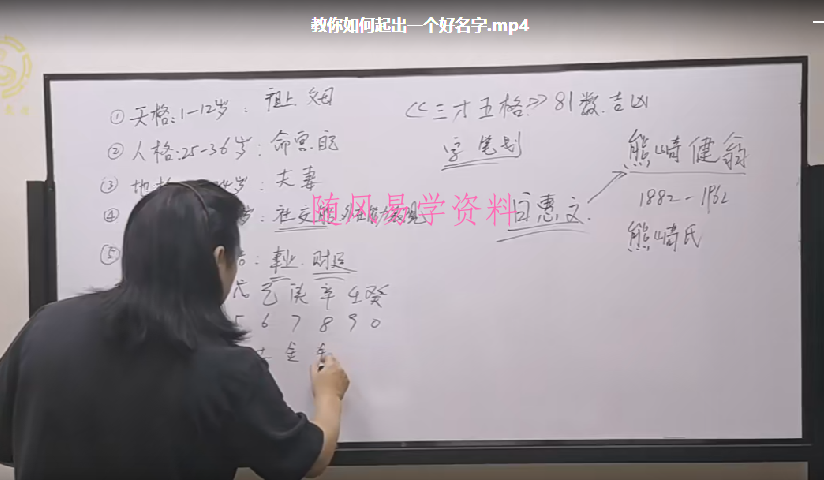 教你如何起出一个好名字.mp4
① 天格:1-12岁: 祖上.父母
② 人格:25-36岁: 命宫.自己
③ 地格 岁: 夫妻
④ 岁: 社交 表现
⑤ : 事业.财运
戊 己 庚 辛 壬 癸
5 6 7 8 9 0
土 金 金
《三才五格》81数.吉凶
字笔划
熊崎健翁
1882-1961
白惠文.
熊崎氏
随风易学资料